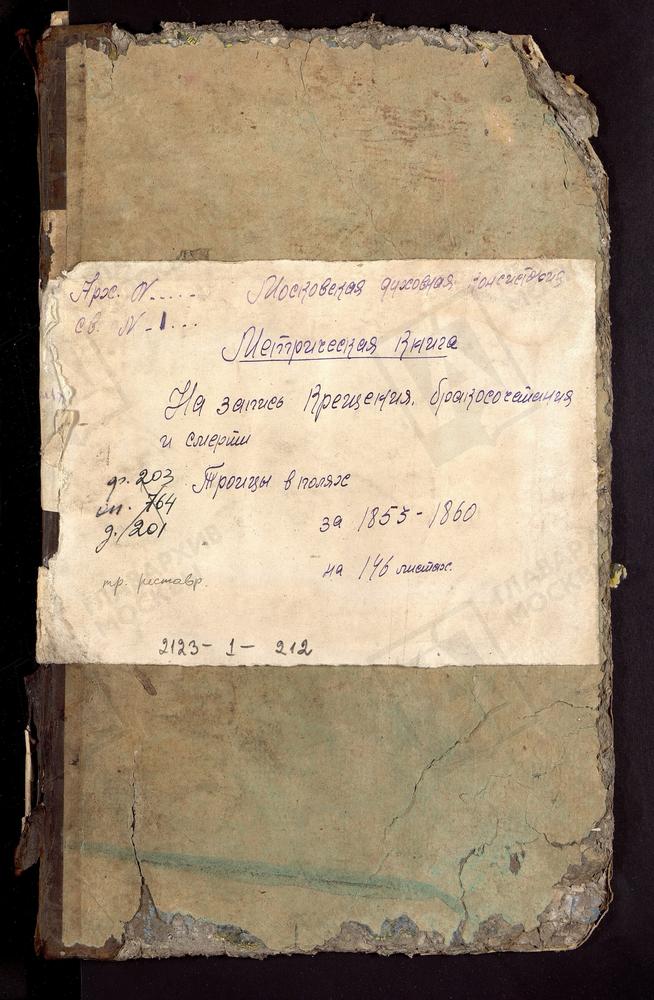 Арх. N..... Московская духовная консистория
св. N-1...
Метрическая Книга
На запись Крещения, бракосочетания
и смерти
ф. 203 Троицы в полях
оп. 764
д. 201 за 1855-1860
на 146 листах
тр. реставр.
2123- 1- 212
ГЛАВАРХИВ
МОСКВЫ